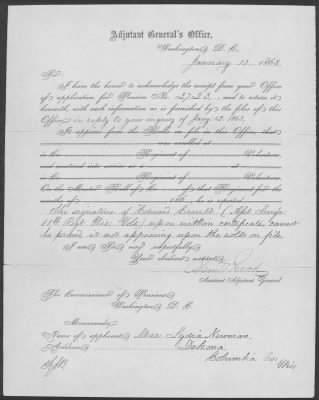 Adjutant General's Office,
Washington, D. C.
January 13, 1863.
Sir:
I have the honor to acknowledge the receipt from your Office
of application for Pension No. 12723, and to return it
herewith, with such information as is furnished by the files of this
Office in reply to your inquiry of Jany 12, 1863.
It appears from the Rolls on file in this Office that
was enrolled at
in Co. Regiment of Volunteers,
and mustered into service as a at
in Co. Regiment of Volunteers,
On the Muster Roll of Co. of that Regiment for the
months of 186 , he is reported
The signature of Edward Everett (Asst Surge
11th Regt Wis. Vols) upon written certificate cannot
be proven it not appearing upon the rolls on file.
I am, Sir, very respectfully,
Your obedient servant,
Assistant Adjutant General.
To the Commissioner of Pensions,
Washington, D. C.
Memoranda:
Name of applicant, Mrs. Lydia Newman,
Address, Dekora,
Columbia Co.
Wis